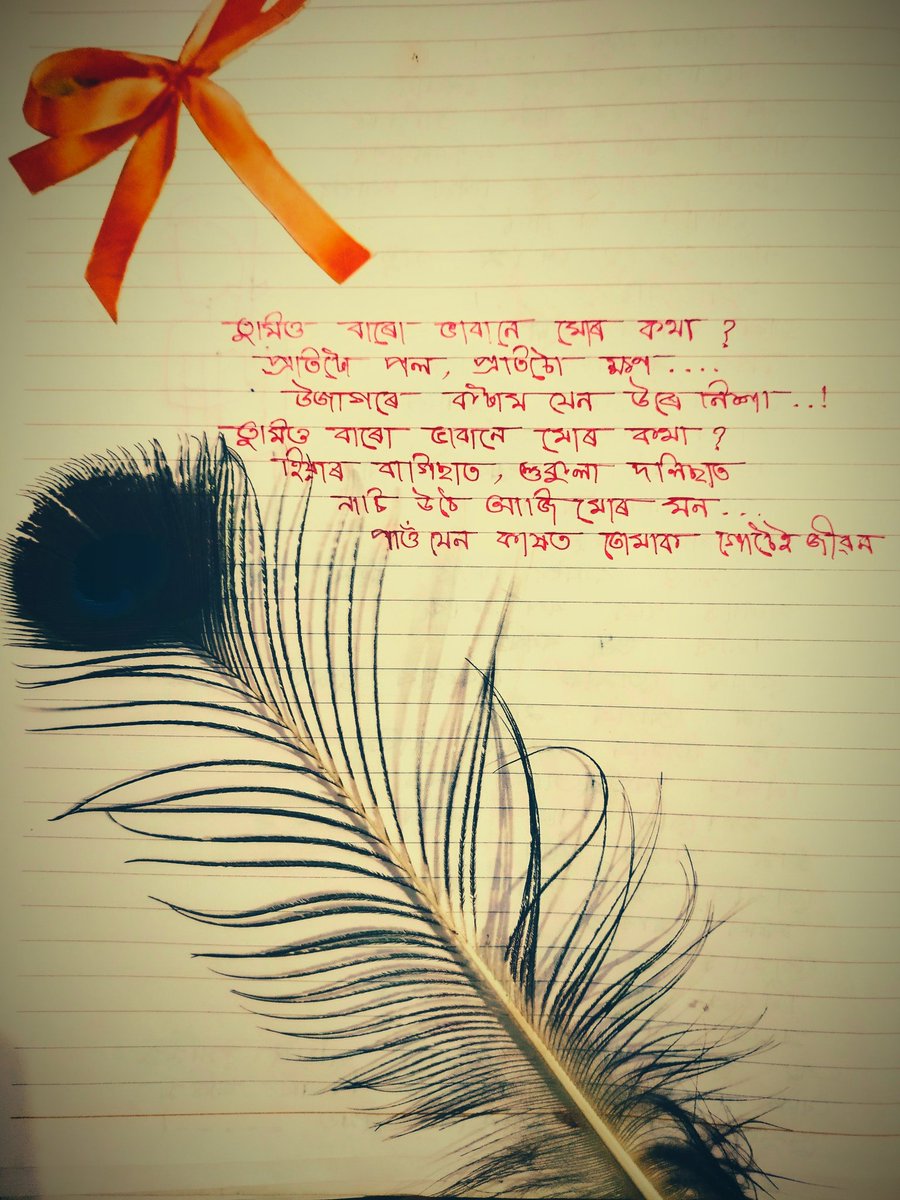 তুমিও বাৰো ভাবানে মোৰ কথা ?
প্ৰতিটো পল , প্ৰতিটো ক্ষণ ....
উজাগৰে কটাম যেন উৰে নিশা ..!
তুমিও বাৰো ভাবানে মোৰ কথা ?
হিয়াৰ বাগিছাত , শুকুলা দলিছাত
নাচি উঠে আজি মোৰ মন ...
পাওঁ যেন কাষত তোমাক গোটেই জীৱন